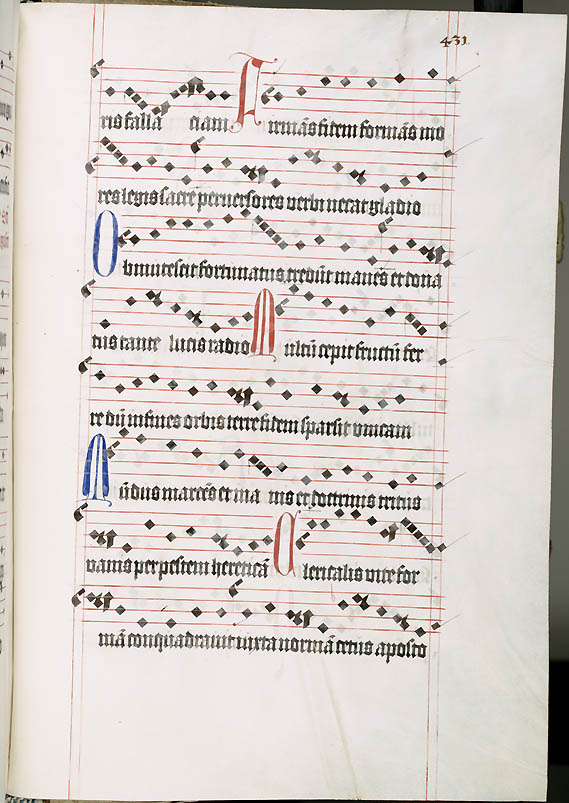 431
ris falla ciam Firmās fidem formās mo
res legis sacre perversores verbi necat gladio
Obmutescit fortunatus credūt manes et dona
tus tante lucis radio Multū cepit fructū fer
re dū in fines orbis terre fidem sparsit unicam
Mūdus marcēs et ina nis et doctrinis
vanis per pestem hereticā Clericalis vite for
mā conquadravit iuxta normā cetus aposto